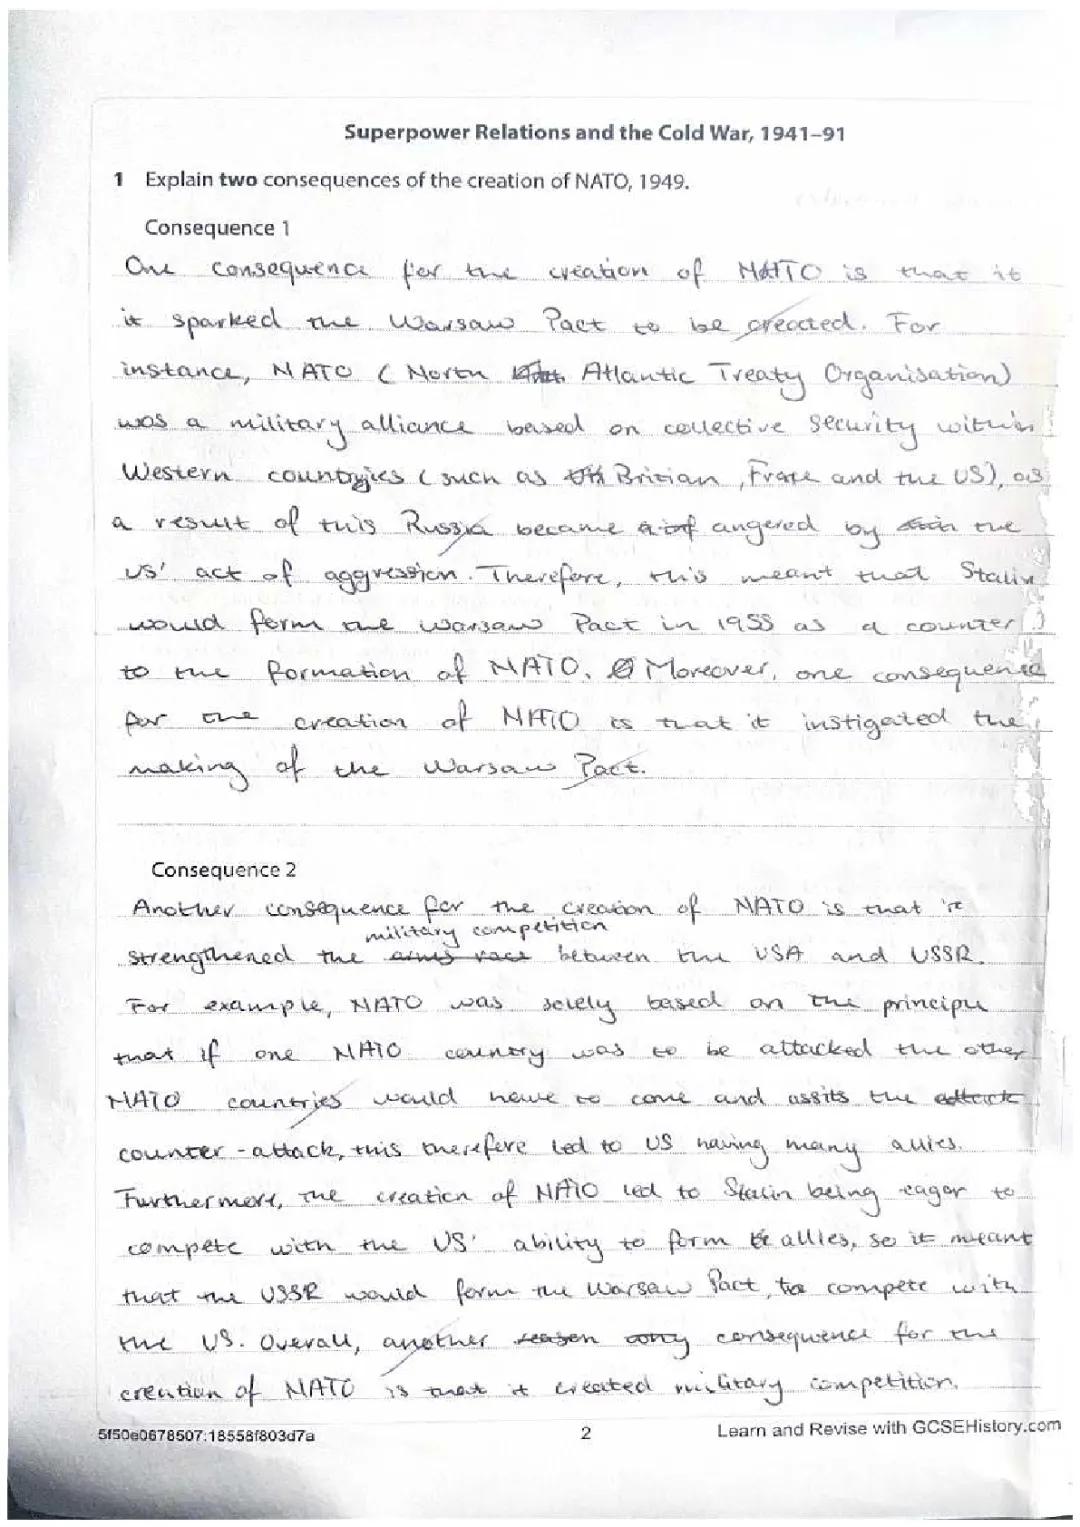 Superpower Relations and the Cold War, 1941–91
1 Explain two consequences of the creation of NATO, 1949.
Consequence 1
One consequence for the creation of NATO is that it
it sparked the Warsaw Pact to be creacted. For
instance, NATO (North Atlantic Treaty Organisation)
was a military alliance based on collective security within
Western countries (such as Britian, Frace and the US), as
a result of this Russia became angered by the
US' act of aggression. Therefore, this meant that Stalin
would form the Warsaw Pact in 1955 as a counter
to the formation of NATO. Moreover, one consequence
for the creation of NATO is that it instigated the
making of the Warsaw Pact.
Consequence 2
Another consequence for the creation of NATO is that it
military competition
strengthened the arms race between the USA and USSR.
For example, NATO was solely based on the principle
that if one NATO country was to be attacked the other
NATO countries would have to come and assits the attack
counter-attack, this therefore led to US having many allies.
Furthermore, the creation of NATO led to Stalin being eagar to
compete with the US' ability to form allies, so it meant
that the USSR would form the Warsaw Pact, to compete with
the US. Overall, another reason consequence for the
creation of NATO is that it created military competition.
5f50e0678507:18558f803d7a
2
Learn and Revise with GCSEHistory.com